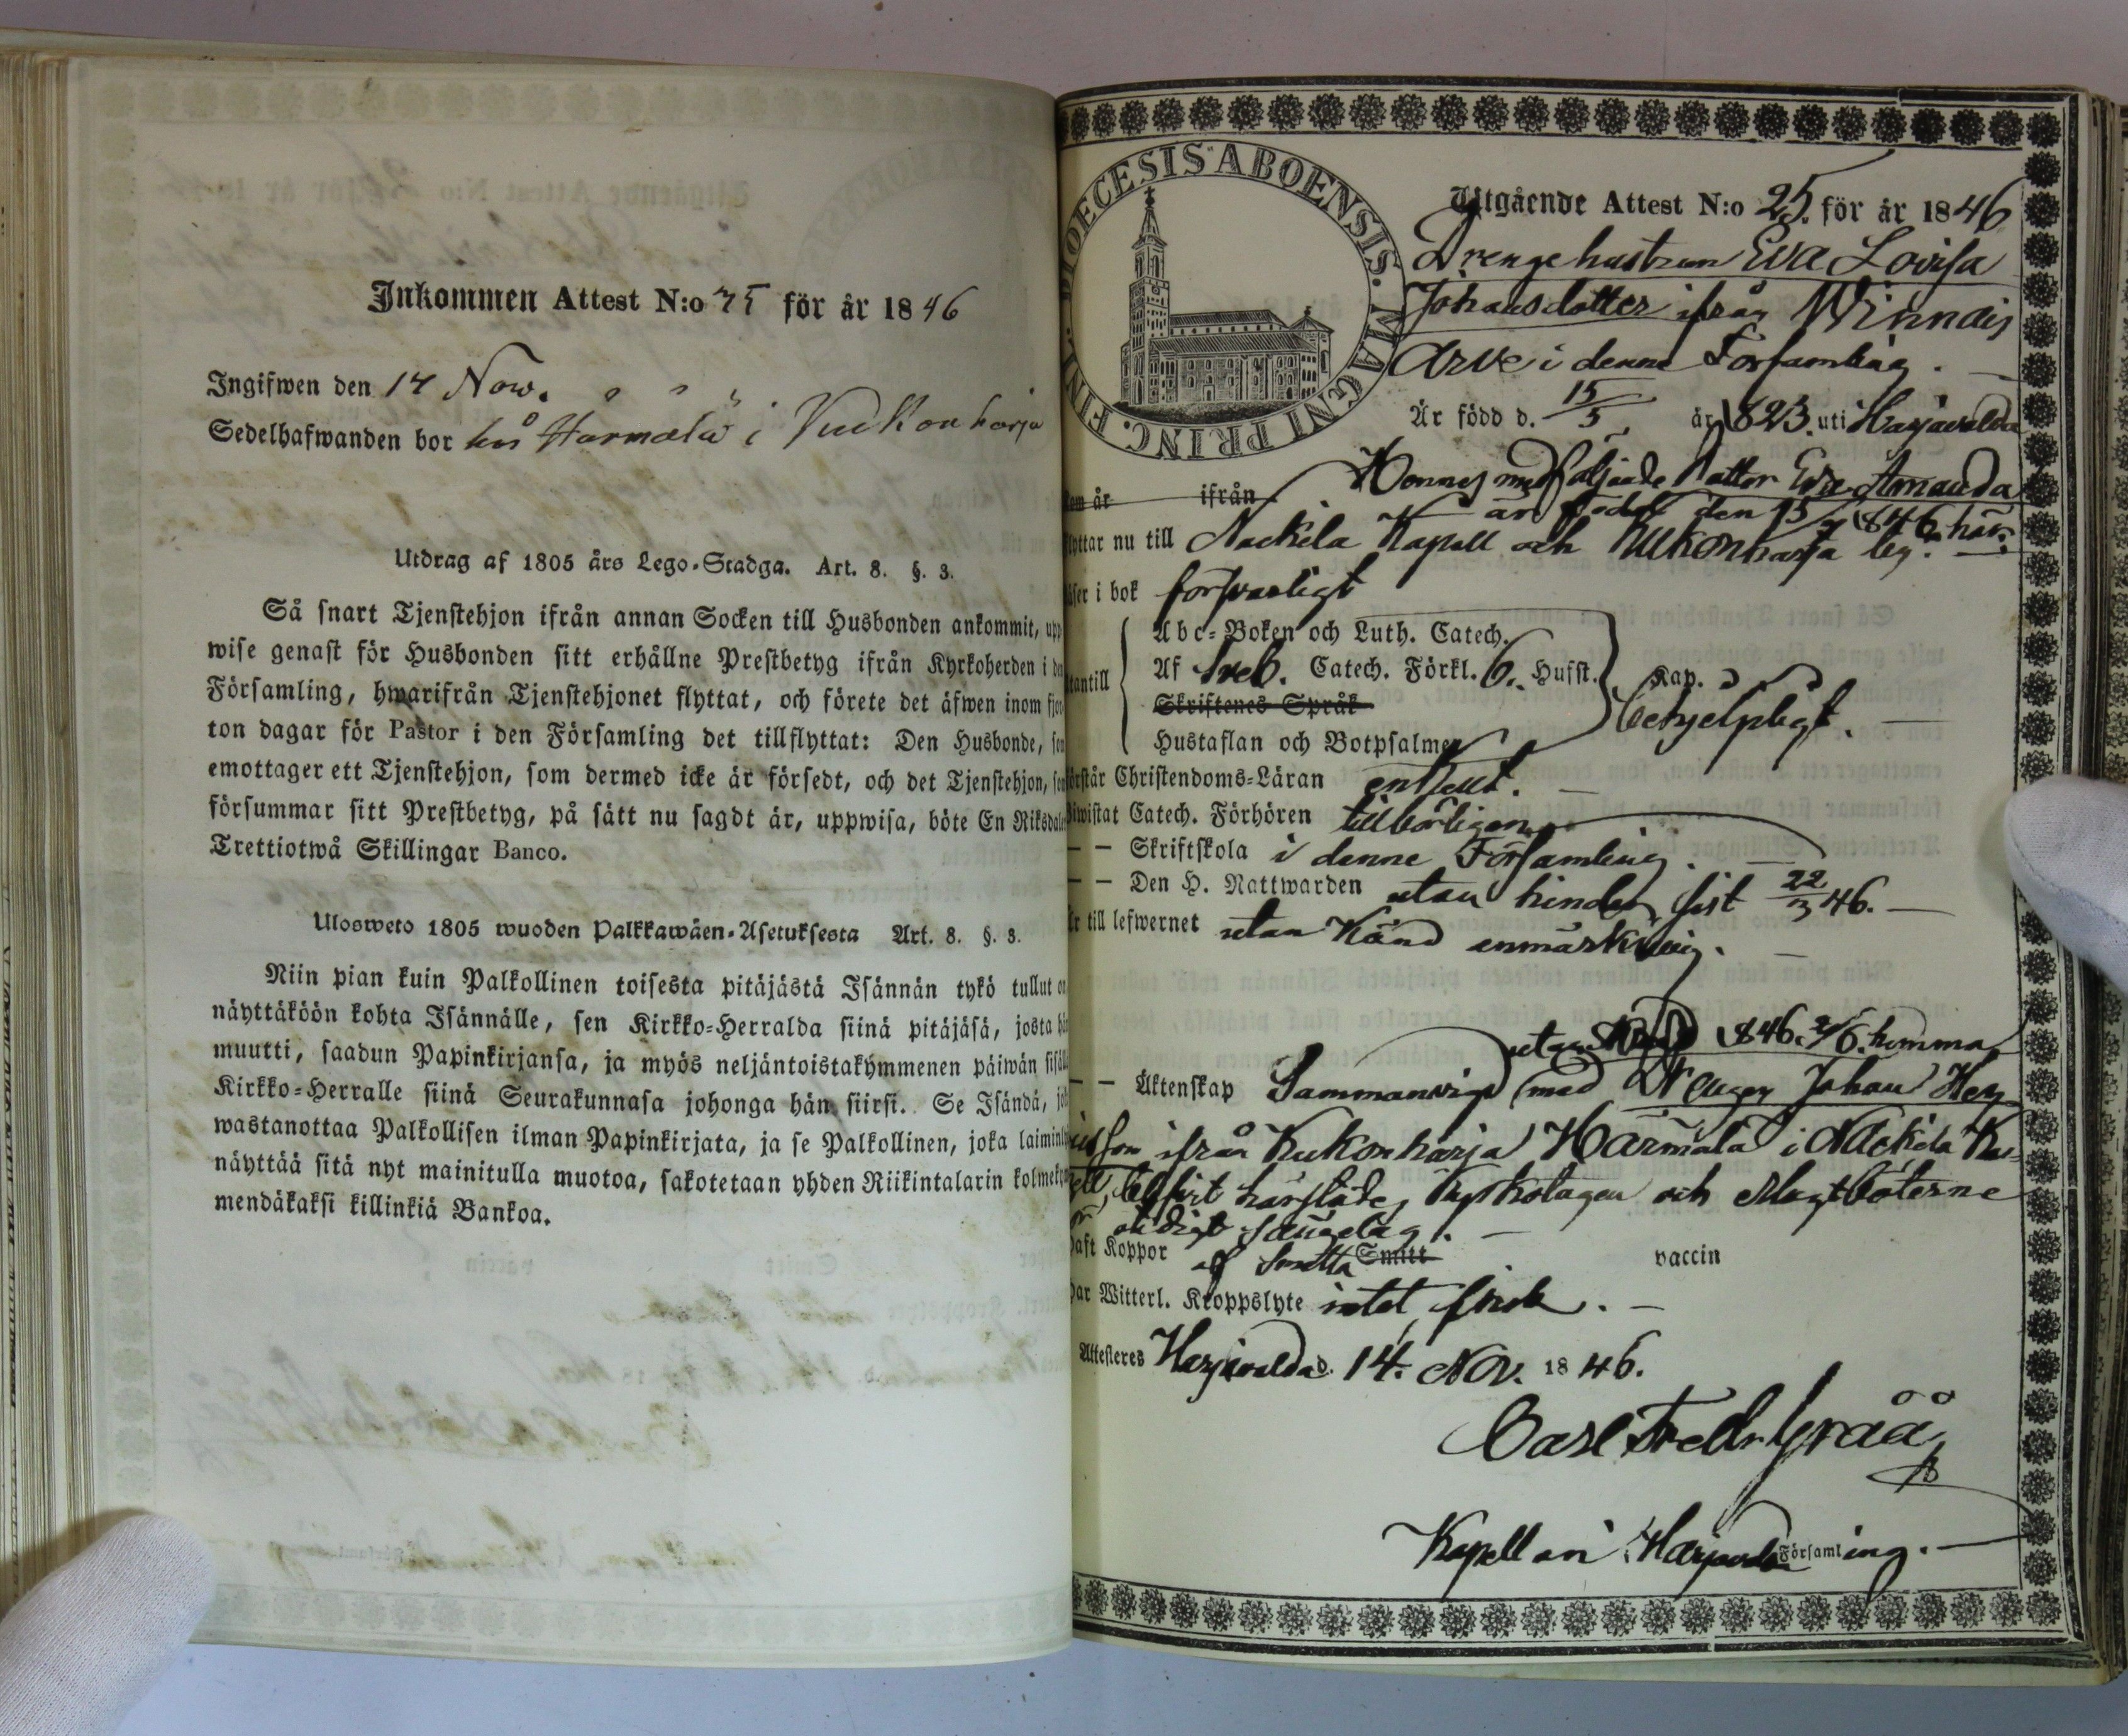 Inkommen Attest N:o 75 för år 1846
Ingifwen den 14 Now.
Sedelhafwanden bor hos Härmälä i Kuckonharja
Utdrag af 1805 års Lego-Stadga. Art. 8. §. 3.
Så snart Tjenstehjon ifrån annan Socken till Husbonden ankommit, upp-
wise genast för Husbonden sitt erhållne Prestbetyg ifrån Kyrkoherden i den
Församling, hwarifrån Tjenstehjonet flyttat, och förete det äfwen inom fjor-
ton dagar för Pastor i den Församling det tillflyttat: Den Husbonde, som
emottager ett Tjenstehjon, som dermed icke är försedt, och det Tjenstehjon, som
försummar sitt Prestbetyg, på sätt nu sagdt är, uppwisa, böte En Riksdaler
Trettiotwå Skillingar Banco.
Ulosweto 1805 wuoden Palkkawäen-Asetuksesta Art. 8. §. 3.
Niin pian kuin Palkollinen toisesta pitäjästä Isännän tykö tullut on
näyttäköön kohta Isännälle, sen Kirkko-Herralda siinä pitäjäsä, josta hän
muutti, saadun Papinkirjansa, ja myös neljäntoistakymmenen päiwän sisällä
Kirkko-Herralle siinä Seurakunnasa johonga hän siirsi. Se Isändä, joka
wastanottaa Palkollisen ilman Papinkirjata, ja se Palkollinen, joka laiminlyö
näyttää sitä nyt mainitulla muotoa, sakotetaan yhden Riikintalarin kolmekym-
mendäkaksi killinkiä Bankoa.
DIOECESIS ABOENSIS. MAGNI PRINC. FINL.
Utgående Attest N:o 25. för år 1846
Drengehustrun Eva Lovisa
Johansdotter ifrån Winnais
Arve i denne Församling.
Är född d. 15/5 år 1823. uti Harjavalda
Kom år ifrån Hennes medföljande dotter Eva Amanda
är född den 15/7 1846 här.
flyttar nu till Nackila Kapell och Kukonharja by.
Läser i bok försvarligt
Utantill Abc-Boken och Luth. Catech.
Af Sveb. Catech. Förkl. 6. Husst. Kap.
Skriftenes Språk behjelpligt.
Hustaflan och Botpsalmer
Förstår Christendoms-Läran enkelt.
Biwistat Catech. Förhören tillbörligen
— — Skriftskola i denne Församling.
— — Den H. Nattwarden utan hinder sist 22/3 46.
Är till lefwernet utan känd anmärkning.
1846. 2/6. hemma
— — Äktenskap Sammanvigd med Drengen Johan Hen-
ricsson ifrån Kukonharja Härmälä i Nackila Ka-
pell,
otidigt sängelag.
Haft Koppor af Smitta Smitt vaccin
Har Witterl. Kroppslyte intet sjuk.
Attesteres Harjavalda d. 14. Nov. 1846.
Carl Fredr. Gråå
Kapellan i Harjavalda Församling.